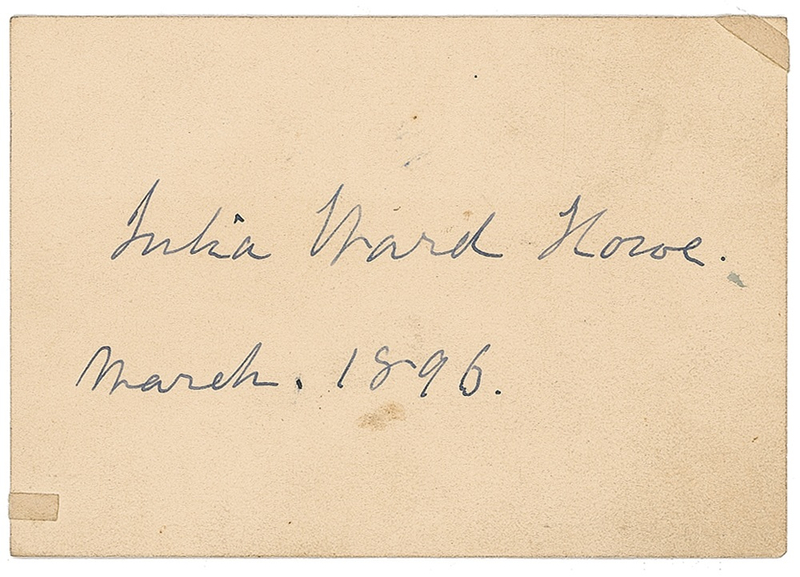 Julia Ward Howe.
March. 1896.